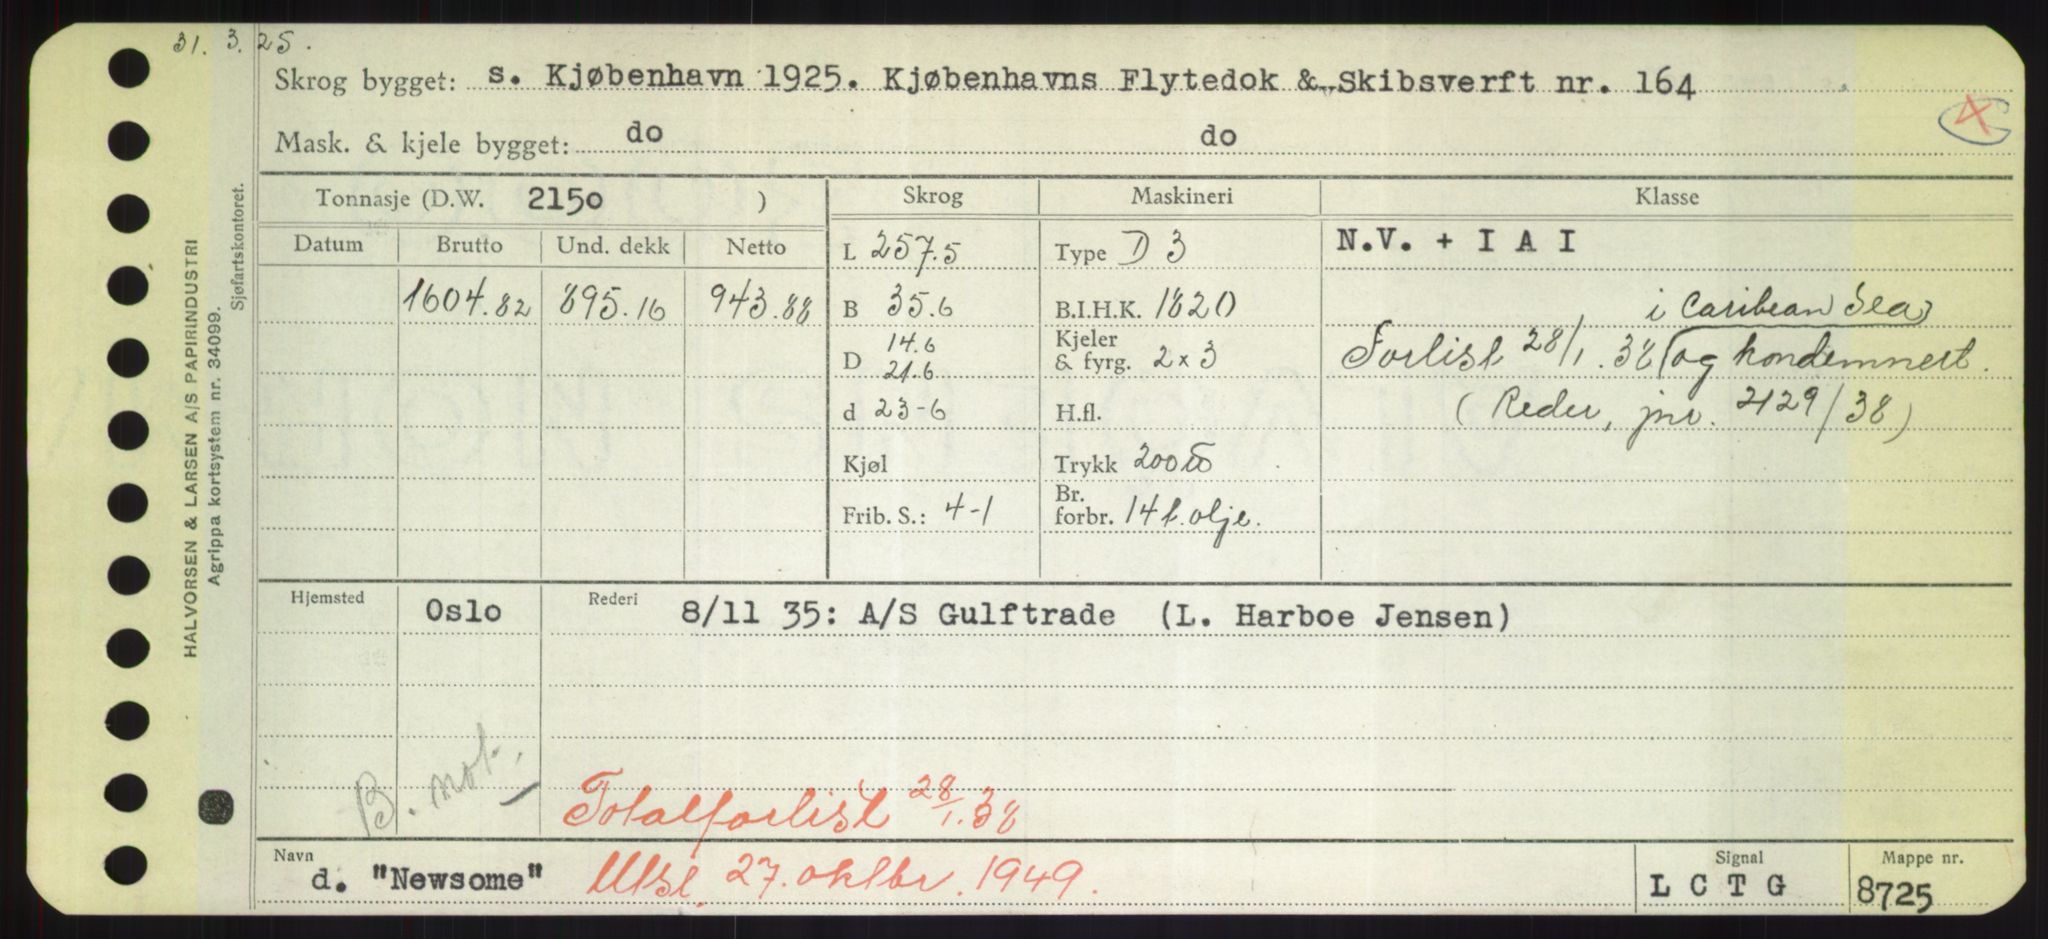 31. 3. 25.
Skrog bygget: s. Kjøbenhavn 1925. Kjøbenhavns Flytedok & Skibsverft nr. 164
Mask. & kjele bygget: do do
Tonnasje (D.W. 2150 ) Skrog Maskineri Klasse
Datum Brutto Und. dekk Netto L 257.5 Type D 3 N.V. + I A I
1604.82 895.16 943.88 B 35.6 B.I.H.K. 1820 i Caribean Sea
D 14.6 21.6 Kjeler & fyrg. 2 x 3 Forlist 28/1. 38 og kondemnert.
d 23-6 H.fl. (Reder, jnr. 2129/38)
Kjøl Trykk 200
Frib. S.: 4-1 Br. forbr. 14 t. olje.
Hjemsted Oslo Rederi 8/11 35: A/S Gulftrade (L. Harboe Jensen)
B. not.
Totalforlist 28/1. 38
Navn d. "Newsome" Utsl. 27. oktbr. 1949.
Signal LCTG
Mappe nr. 8725
HALVORSEN & LARSEN A/S PAPIRINDUSTRI
Agrippa kortsystem nr. 34099.
Sjøfartskontoret.